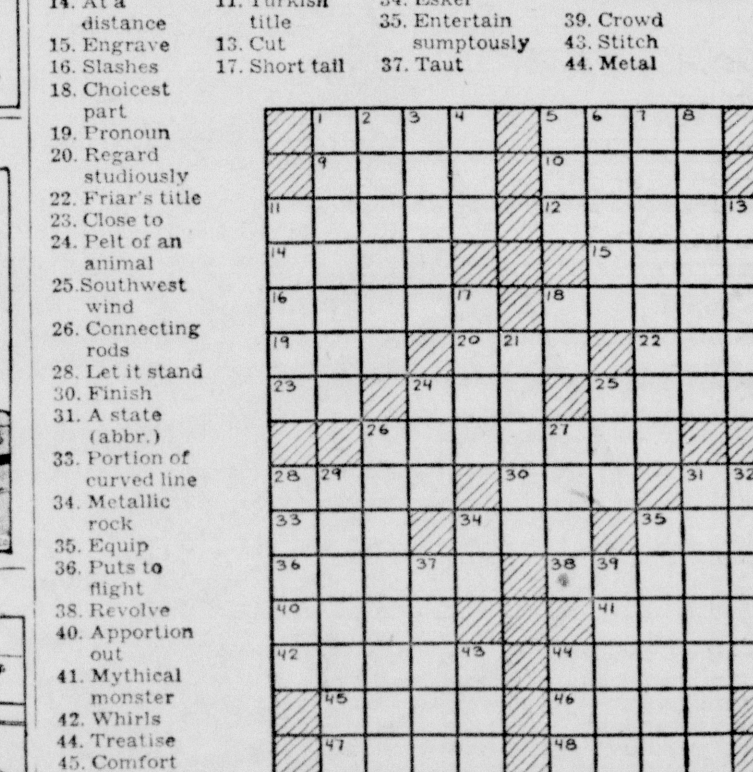 14. At a
distance
15. Engrave
16. Slashes
18. Choicest
part
19. Pronoun
20. Regard
studiously
22. Friar's title
23. Close to
24. Pelt of an
animal
25.Southwest
wind
26. Connecting
rods
28. Let it stand
30. Finish
31. A state
(abbr.)
33. Portion of
curved line
34. Metallic
rock
35. Equip
36. Puts to
flight
38. Revolve
40. Apportion
out
41. Mythical
monster
42. Whirls
44. Treatise
45. Comfort
11. Turkish
title
13. Cut
17. Short tail
34. Esker
35. Entertain
sumptously
37. Taut
39. Crowd
43. Stitch
44. Metal
1 2 3 4 5 6 7 8
9 10
11 12 13
14 15
16 17 18
19 20 21 22
23 24 25
26 27
28 29 30 31 32
33 34 35
36 37 38 39
40 41
42 43 44
45 46
47 48